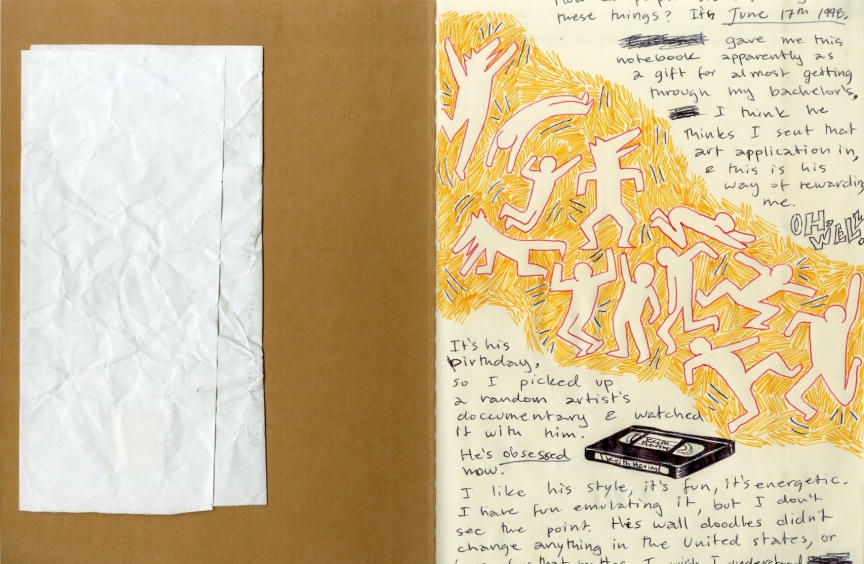 these things? It's June 17th 1998.
gave me this
notebook apparently as
a gift for almost getting
through my bachelor's,
I think he
thinks I sent that
art application in,
& this is his
way of rewarding
me.
OH, WELL!
It's his
birthday,
so I picked up
a random artist's
documentary & watched
it with him.
He's obsessed
now.
Keith Haring
Keith Haring
I like his style, it's fun, it's energetic.
I have fun emulating it, but I don't
see the point. His wall doodles didn't
change anything in the United States, or
I wish I understood